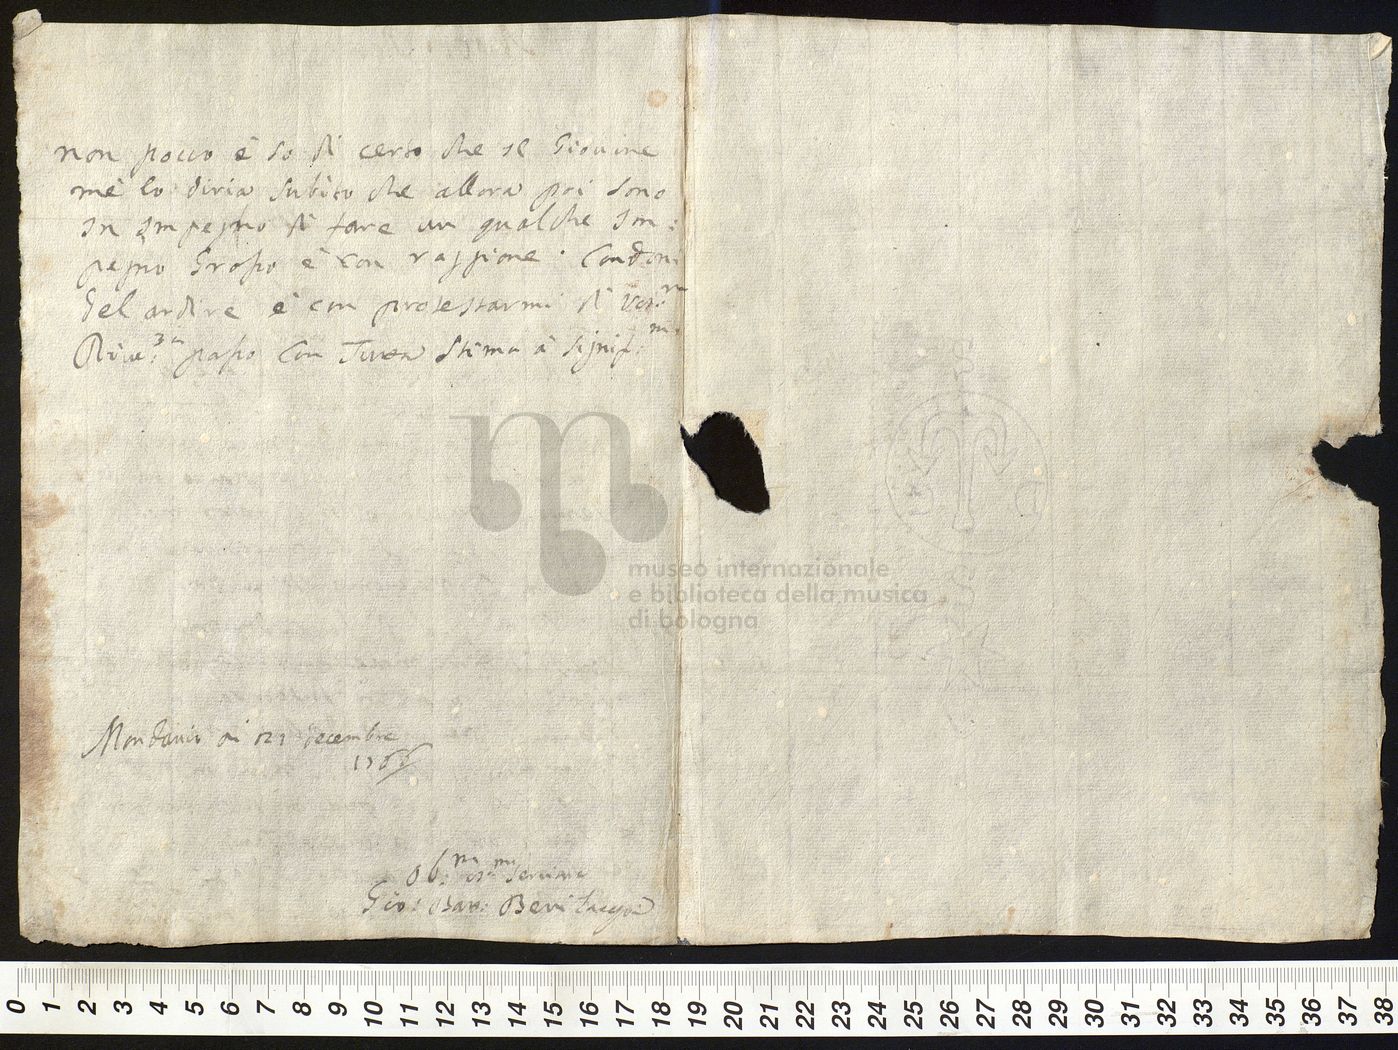 non pocco è so di certo che il Giovine
mè lo diria subito che allora poi sono
in impegno di fare un qualche im:
pegno Grosso è con raggione. Condoni
Gel ardire è con protestarmi di
passo con Tutta stima à
Mondavio ai 021 decembre
1766
Ob:mo
Gio: Batt: Bevilacqua
museo internazionale
e biblioteca della musica
di bologna
0 1 2 3 4 5 6 7 8 9 10 11 12 13 14 15 16 17 18 19 20 21 22 23 24 25 26 27 28 29 30 31 32 33 34 35 36 37 38